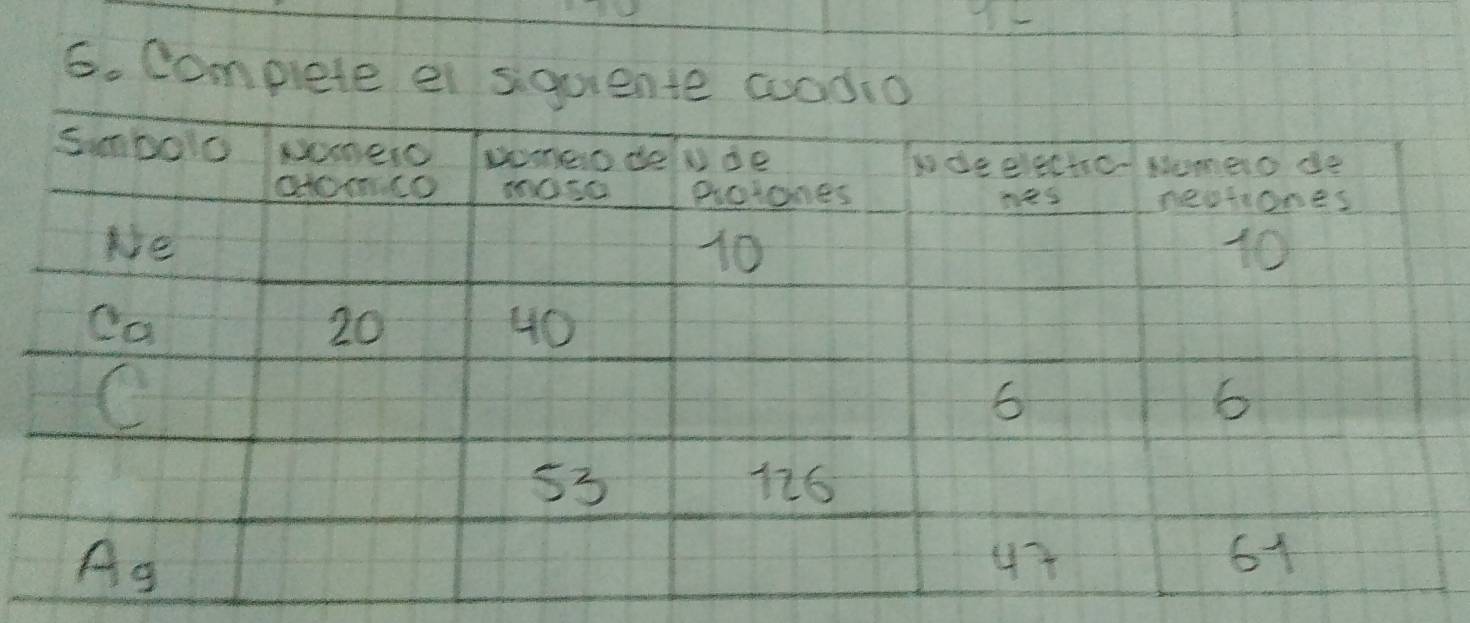 6. Complete el siguiente cuadro
Simbolo Numero atomico Numero de masa N de Protones N de electrones Numero de neutrones
Ne 10 10
Ca 20 40
C 6 6
53 126
Ag 47 61